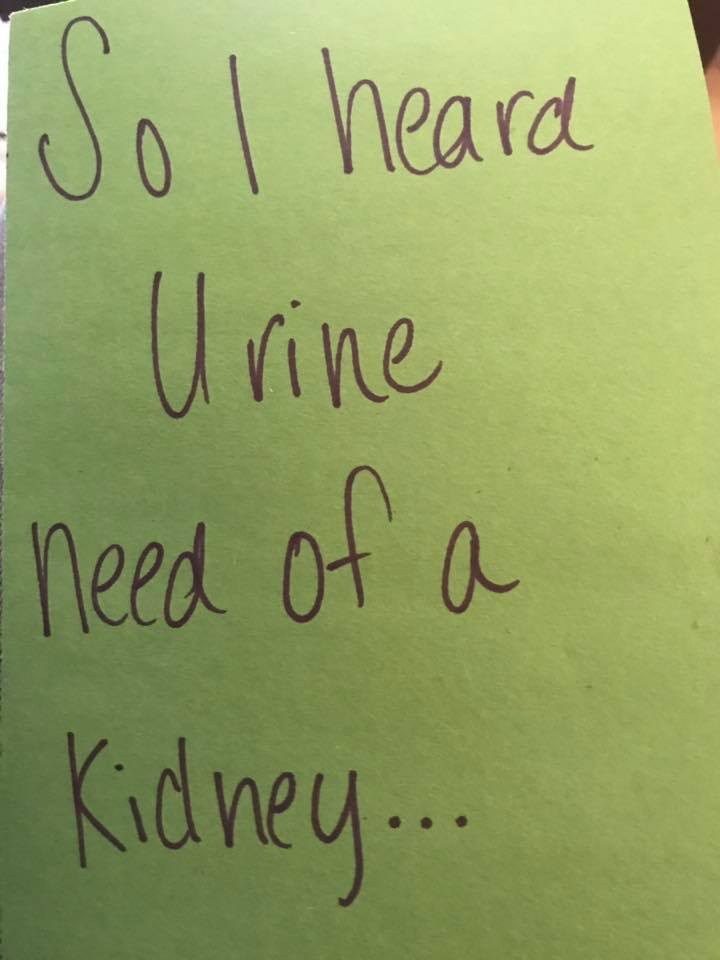 So I heard
Urine
need of a
Kidney...